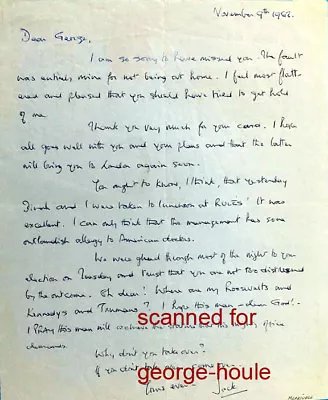 November 9th 1988.
Dear George,
I am so sorry to have missed you. The fault
was entirely mine for not being out home. I feel most flatt-
ered and pleased that you should have tried to get hold
of me.
Thank you very much for your card. I hope
all goes well with you and your plans and that the latter
will bring you to London again soon.
You ought to know, I think, that yesterday
Dinah and I were taken to luncheon at RULES! It was
excellent. I can only think that the management has some
outlandish allergy to American doctors.
We were glued through most of the night to your
election on Tuesday and trust that you are not too distressed
by the outcome. Oh dear! Where are my Roosevelts and
Kennedys and Trumans? I hope this man - dear God! -
I PRAY this man will achieve the stature and his office
demands.
scanned for
Why don't you take over?
If you don't take over
george-houle
Yours ever
Jack
MERRIVALE